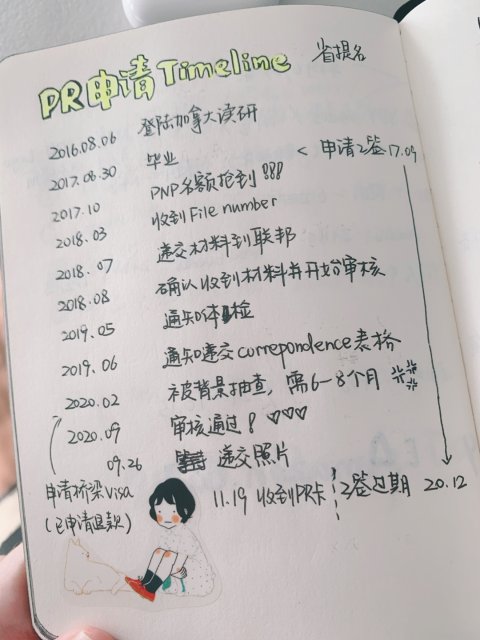 PR申请Timeline 省提名
2016.08.06 登陆加拿大读研
2017.08.30 毕业 < 申请工签17.09
2017.10 PNP名额抢到!!!
2018.03 收到File number
2018.07 递交材料到联邦
2018.08 确认收到材料并开始审核
2019.05 通知体检
2019.06 通知递交correpondence表格
2020.02 被背景抽查,需6-8个月
2020.09 审核通过! ♡♡♡
09.26 递交照片
申请桥梁visa 11.19 收到PR卡 工签过期 20.12
(已申请退款)